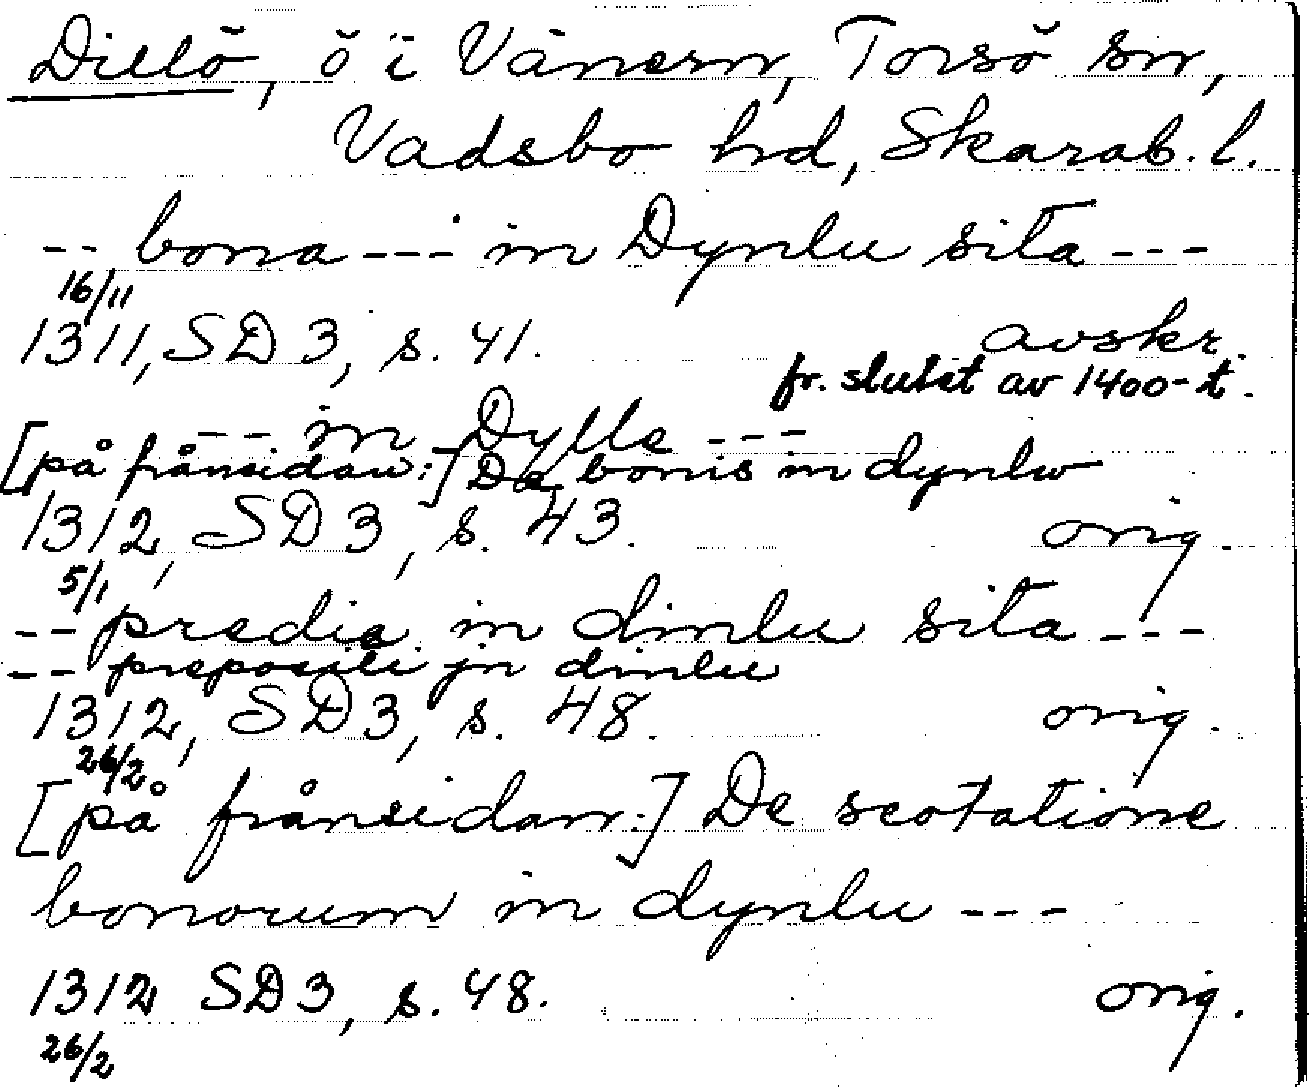 Dillö, ö i Vänern, Torsö sn,
Vadsbo hd, Skarab. l.
-- bona --- in Dynlu sita ---
16/11
1311, SD 3, s. 41. avskr.
fr. slutet av 1400-t.
--- in Dylle ---
[på frånsidan:] De bonis in dynlw
1312, SD 3, s. 43. orig.
5/1
-- predia in dinlu sita ---
-- prepositi jn dinlu
1312, SD3, s. 48. orig.
26/2
[på frånsidan:] De scotatione
bonorum in dynlu ---
1312 SD3, s. 48. orig.
26/2